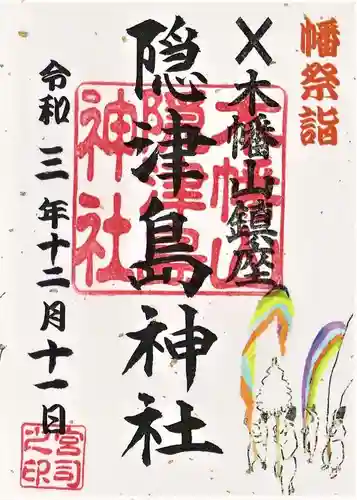 幡祭詣
〤木幡山鎮座
隠津島神社
令和三年十二月十一日
木幡山
隠津島
神社
宮司
之印